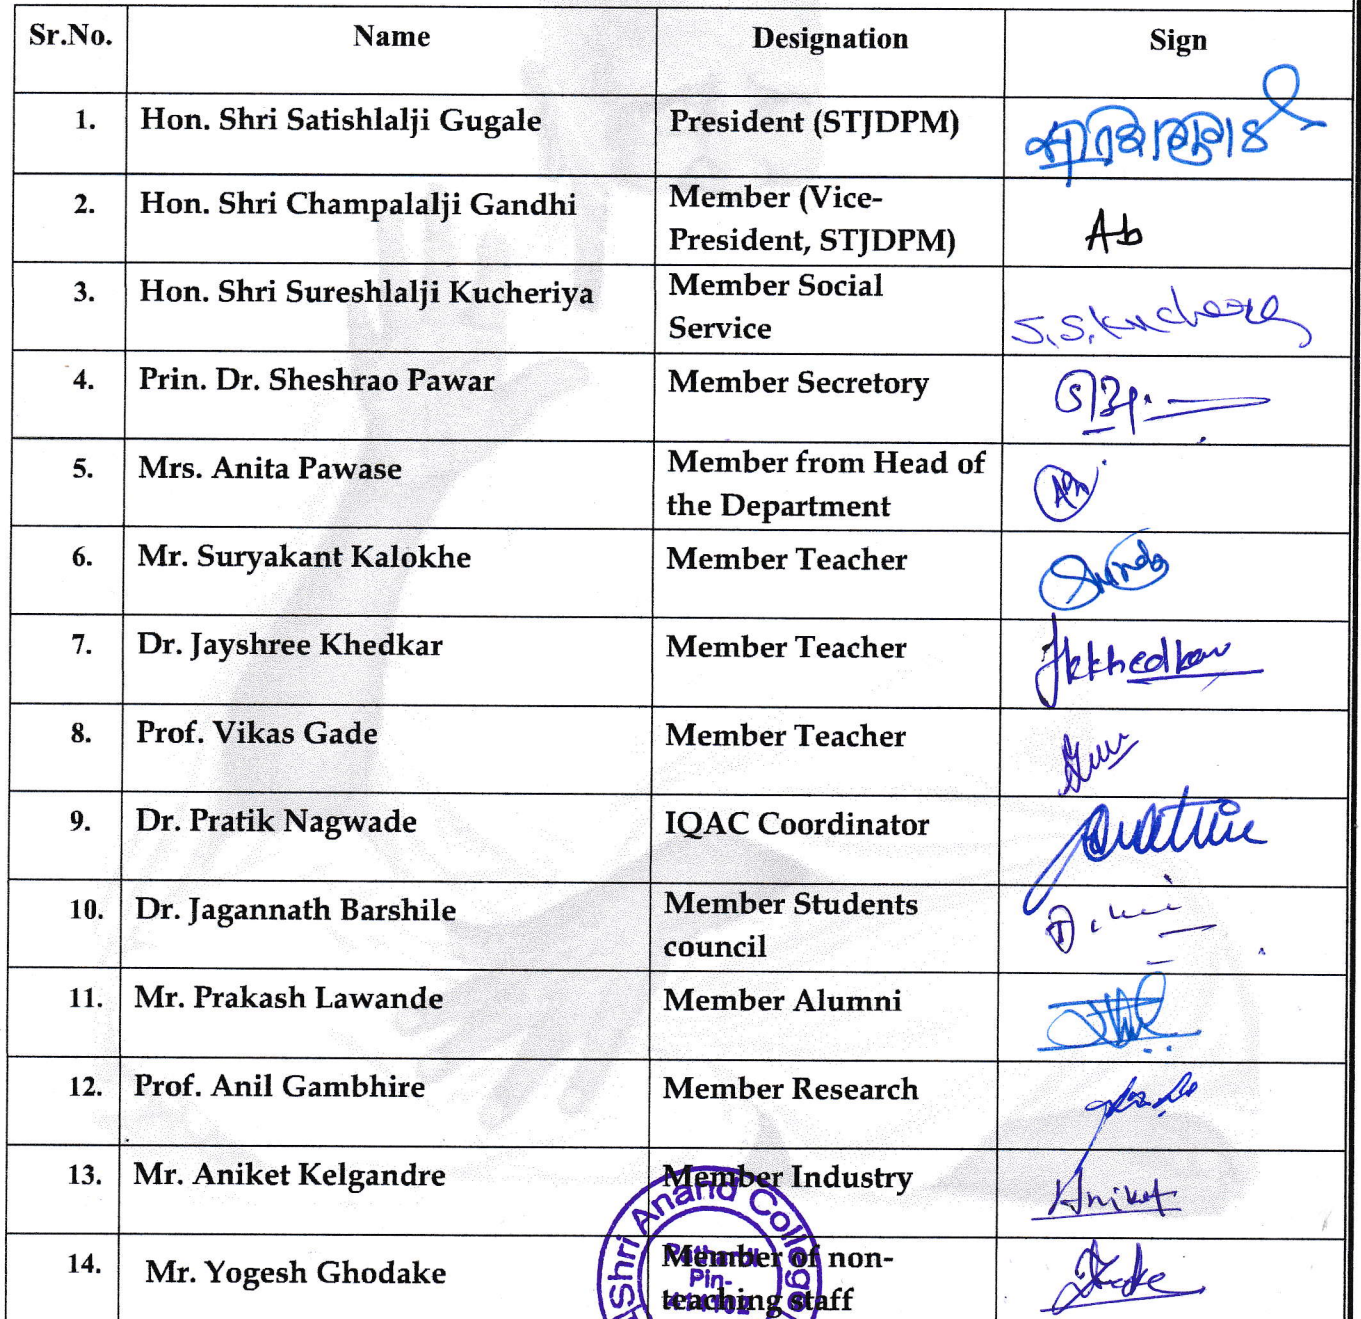 Sr.No. Name Designation Sign
1. Hon. Shri Satishlalji Gugale President (STJDPM)
2. Hon. Shri Champalalji Gandhi Member (Vice-
President, STJDPM) Ab
3. Hon. Shri Sureshlalji Kucheriya Member Social
Service S.S.Kucheria
4. Prin. Dr. Sheshrao Pawar Member Secretory
5. Mrs. Anita Pawase Member from Head of
the Department
6. Mr. Suryakant Kalokhe Member Teacher
7. Dr. Jayshree Khedkar Member Teacher
8. Prof. Vikas Gade Member Teacher
9. Dr. Pratik Nagwade IQAC Coordinator
10. Dr. Jagannath Barshile Member Students
council
11. Mr. Prakash Lawande Member Alumni
12. Prof. Anil Gambhire Member Research
13. Mr. Aniket Kelgandre Member Industry Aniket
14. Mr. Yogesh Ghodake Member of non-
teaching staff
Shri Anand College
Pathardi
Pin-